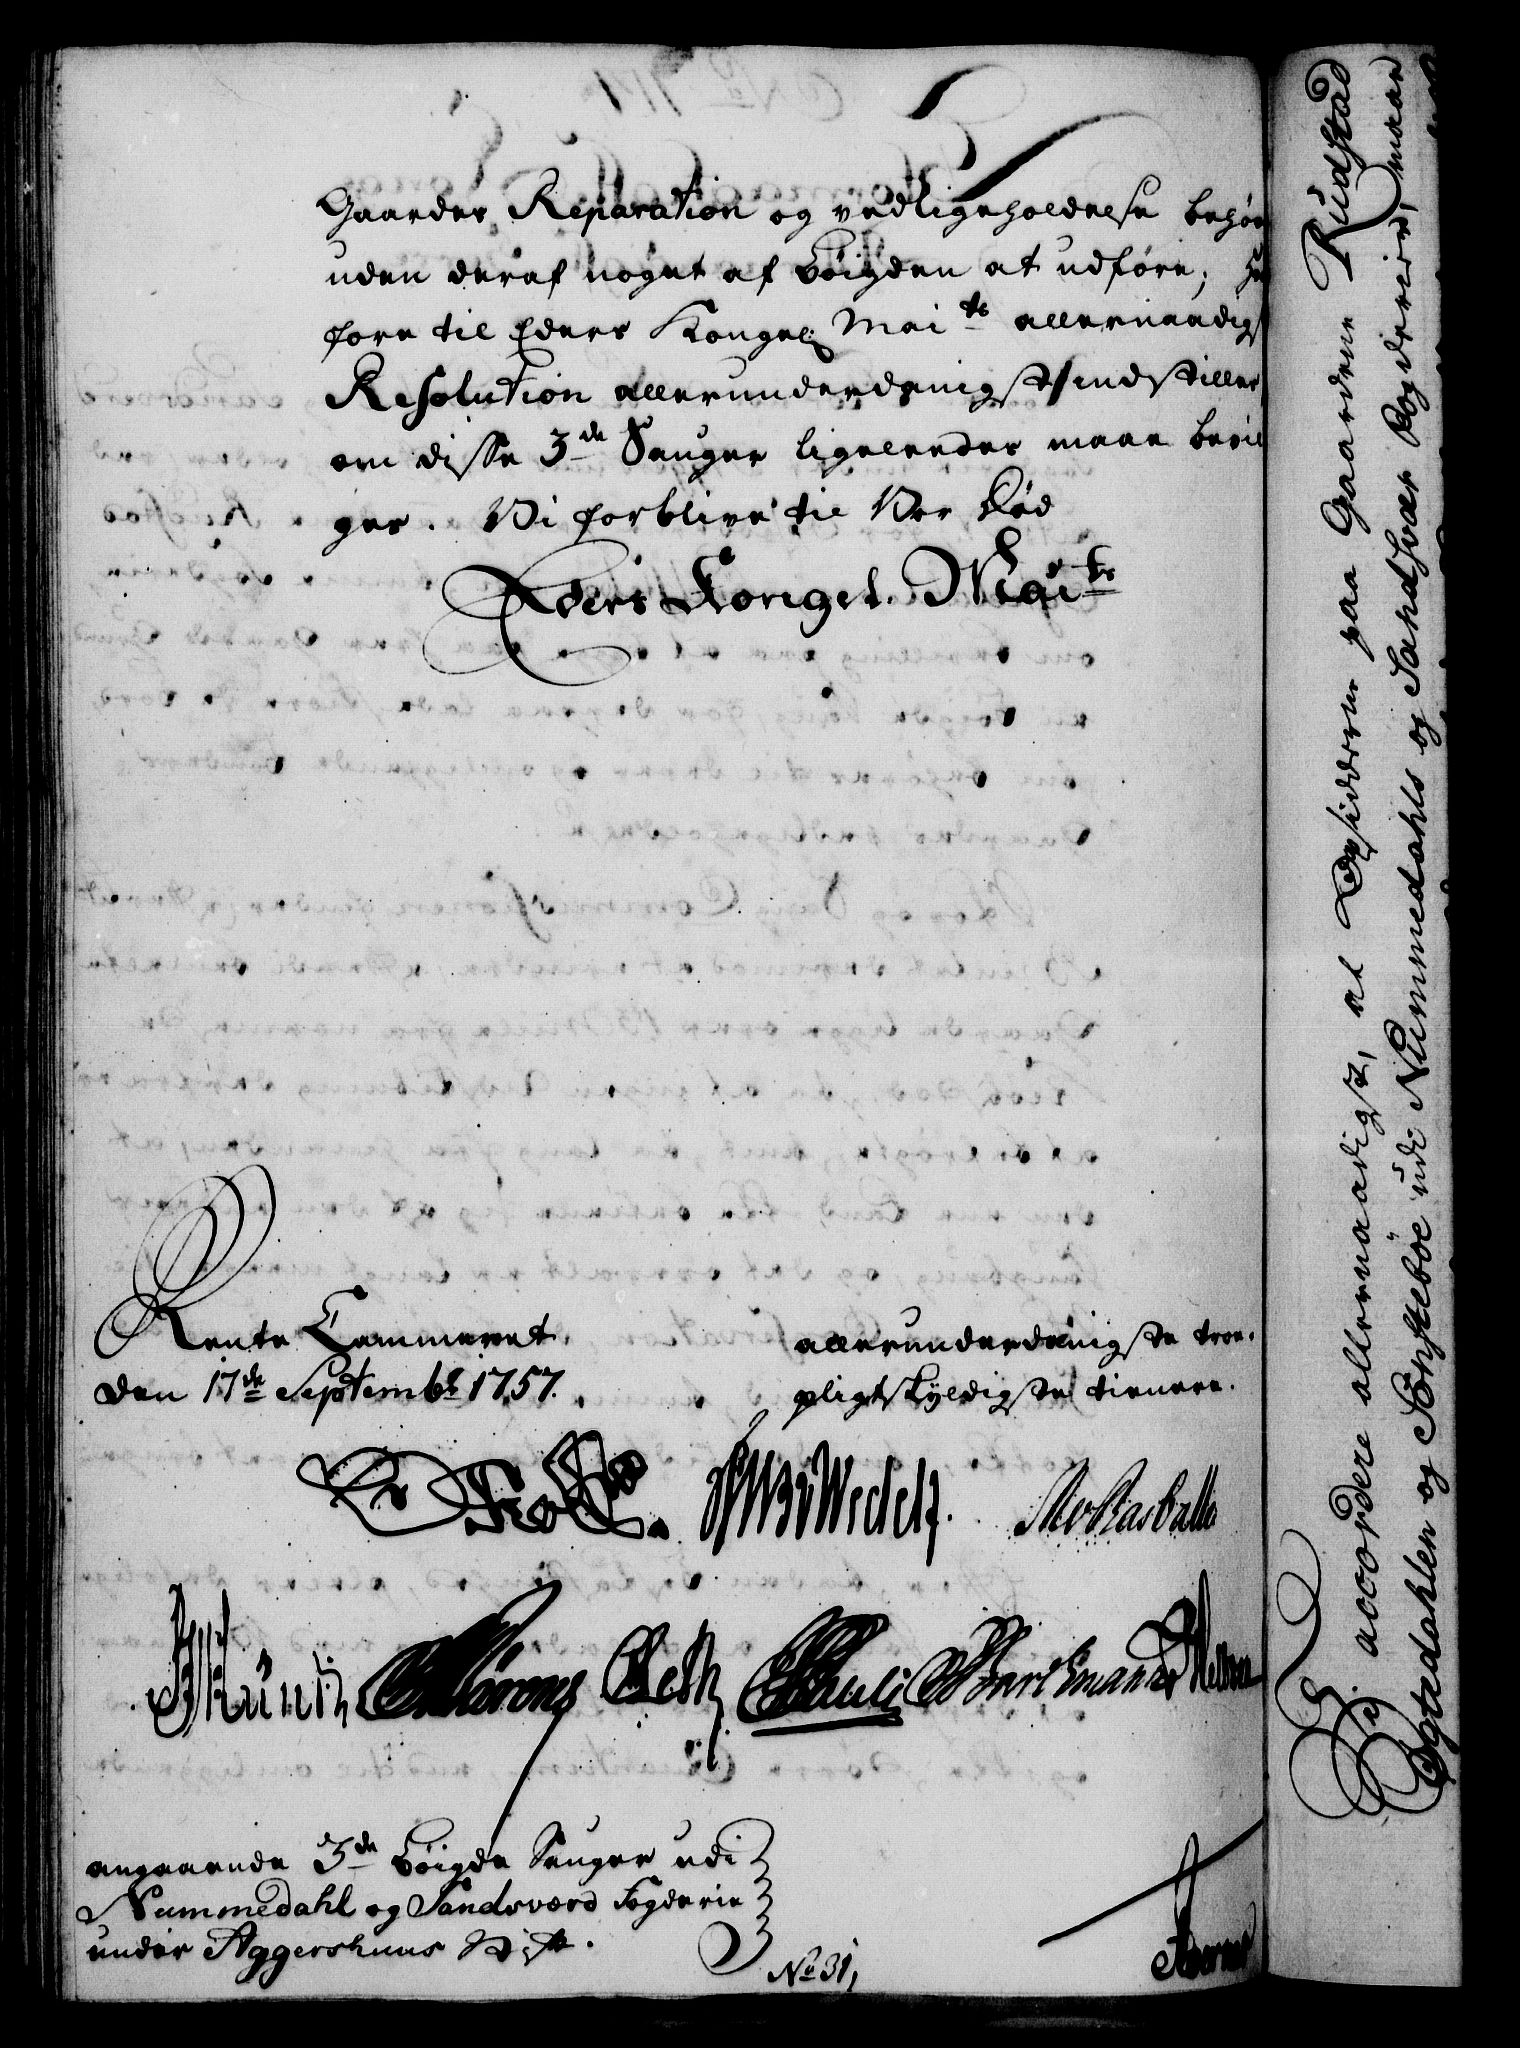 Gaarders Reparation og vedligeholdelse behøv
uden deraf noget af Bøigden at udføre;
fore til Eders Kongel: Mai:ts allernaadigst
Resolution allerunderdanigst indstiller
om disse 3de Sauger ligeleedes maae bevil
ges. Vi forblive til Vor Død
Eders Kongel. Mai:ts
Rente Cammeret
den 17de Septembr 1757.
allerunderdanigste troe-
pligtskyldigste tienere.
Wedell.
angaaende 3de Bøigde Sauger udi
Nummedahl og Sandsværd Fogderie
under Aggershuus Stift.
No 31,
Vi accordere allernaadigst, at Opsidderne paa Gaardene Rudstad
Egtedahlen og Sönsteböe udi Nummedahls og Sandsvær Fogderier, maae